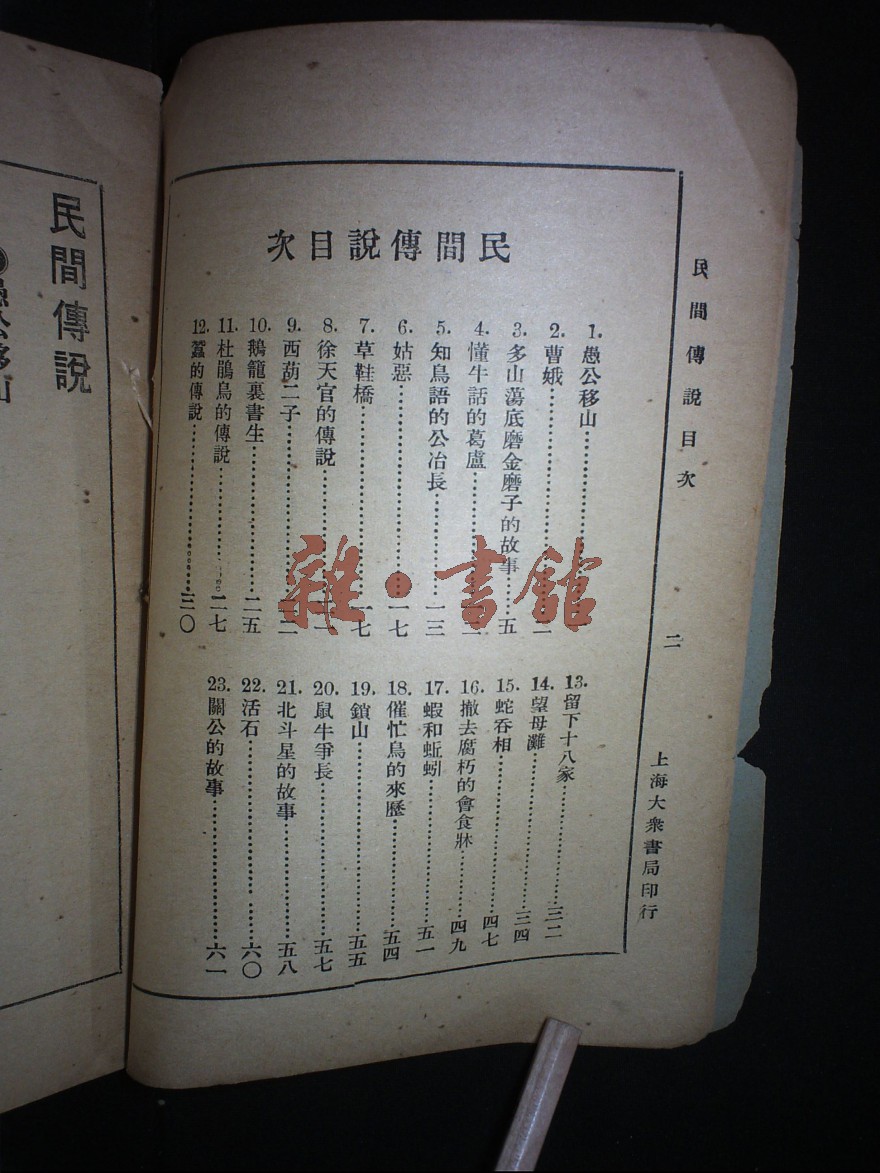 民間傳說目次
1.愚公移山
2.曹娥
3.多山蕩底磨金磨子的故事……五
4.懂牛話的葛盧
5.知鳥語的公冶長……一三
6.姑惡……一七
7.草鞋橋……一七
8.徐天官的傳說
9.西葫二子
10.鵝籠裏書生……二五
11.杜鵑鳥的傳說……二七
12.蠶的傳說……三〇
13.留下十八家……三二
14.望母灘……三四
15.蛇吞相……四七
16.撤去腐朽的會食牀……四九
17.蝦和蚯蚓……五一
18.催忙鳥的來歷……五四
19.鎖山……五五
20.鼠牛爭長……五七
21.北斗星的故事……五八
22.活石……六〇
23.關公的故事……六一
民間傳說目次
二
上海大衆書局印行
民間傳說
愚公移山
雜·書館